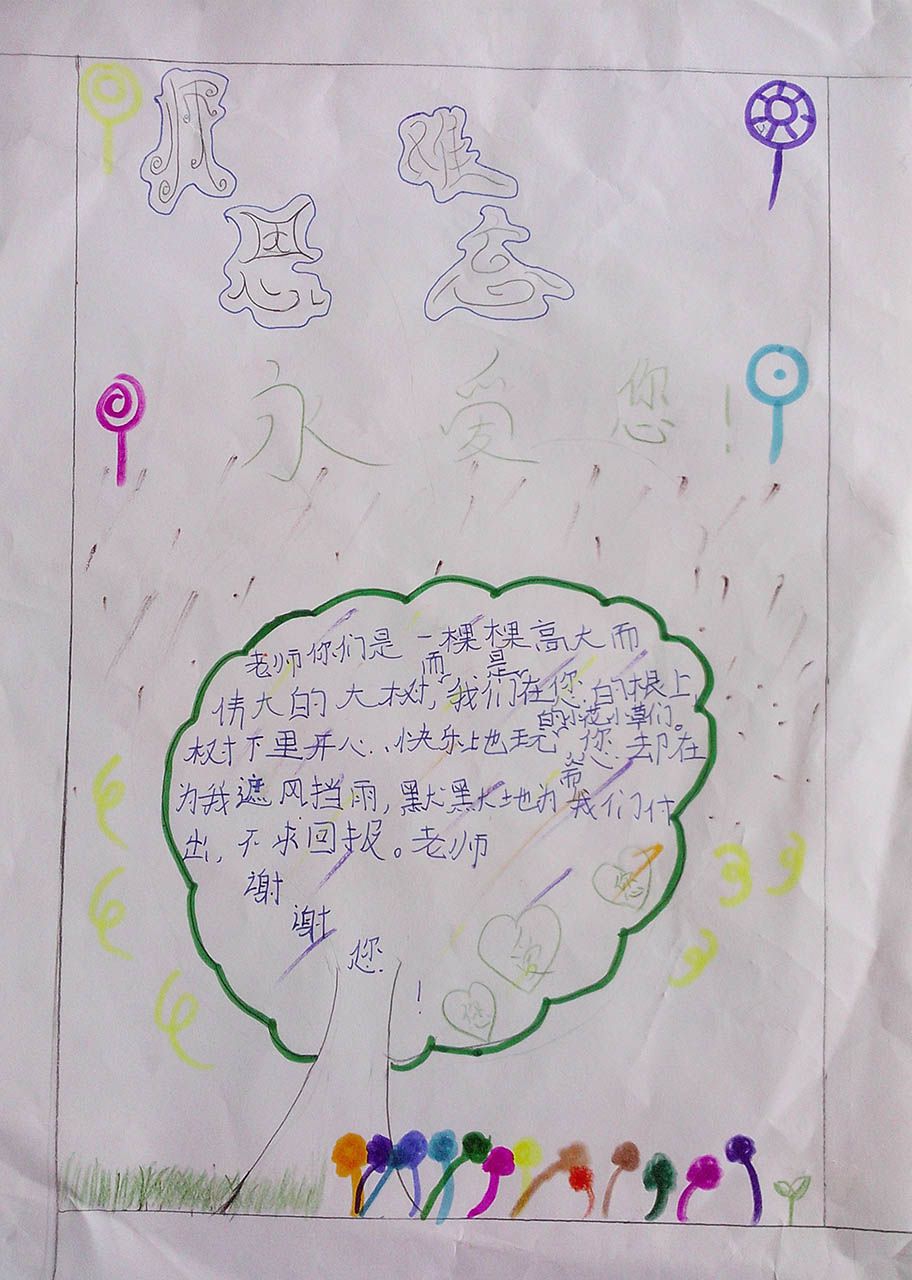 师恩难忘
永爱您!
老师你们是一棵棵高大而
而 是
伟大的大树,我们在您的根上,
的小花小草们。
树下里开心、快乐地玩,您却在
而
为我遮风挡雨,默默地为我们付
出,不求回报。老师
谢
谢
您
!
您
爱
您